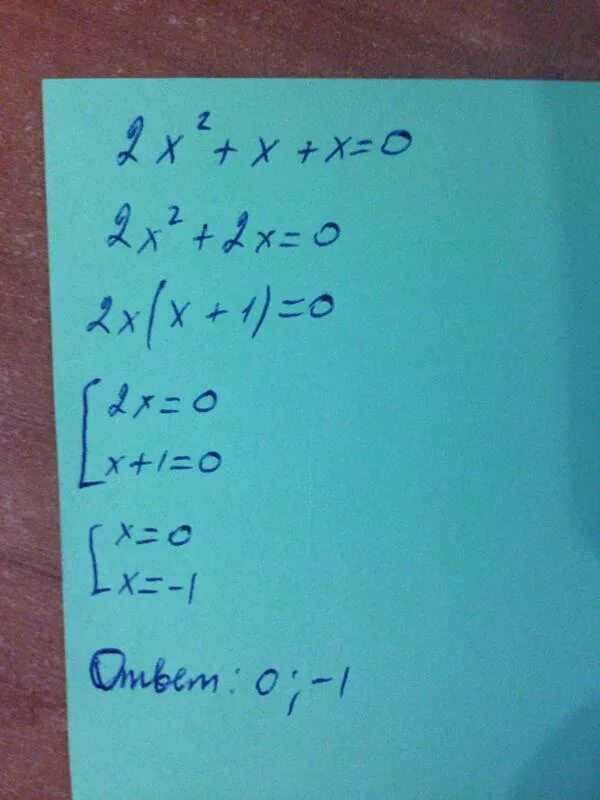 2x² + x + x = 0
2x² + 2x = 0
2x(x + 1) = 0
[2x = 0
x + 1 = 0
[x = 0
x = -1
Ответ: 0; -1